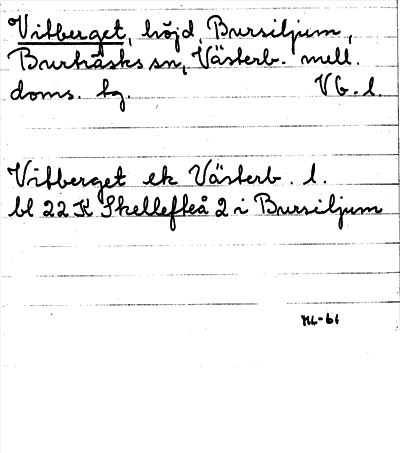 Vitberget, höjd, Bursiljum,
Burträsks sn, Västerb. mell.
doms. hg. Vb. l.
Vitberget ek Västerb. l.
bl 22 K Skellefteå 2 i Bursiljum